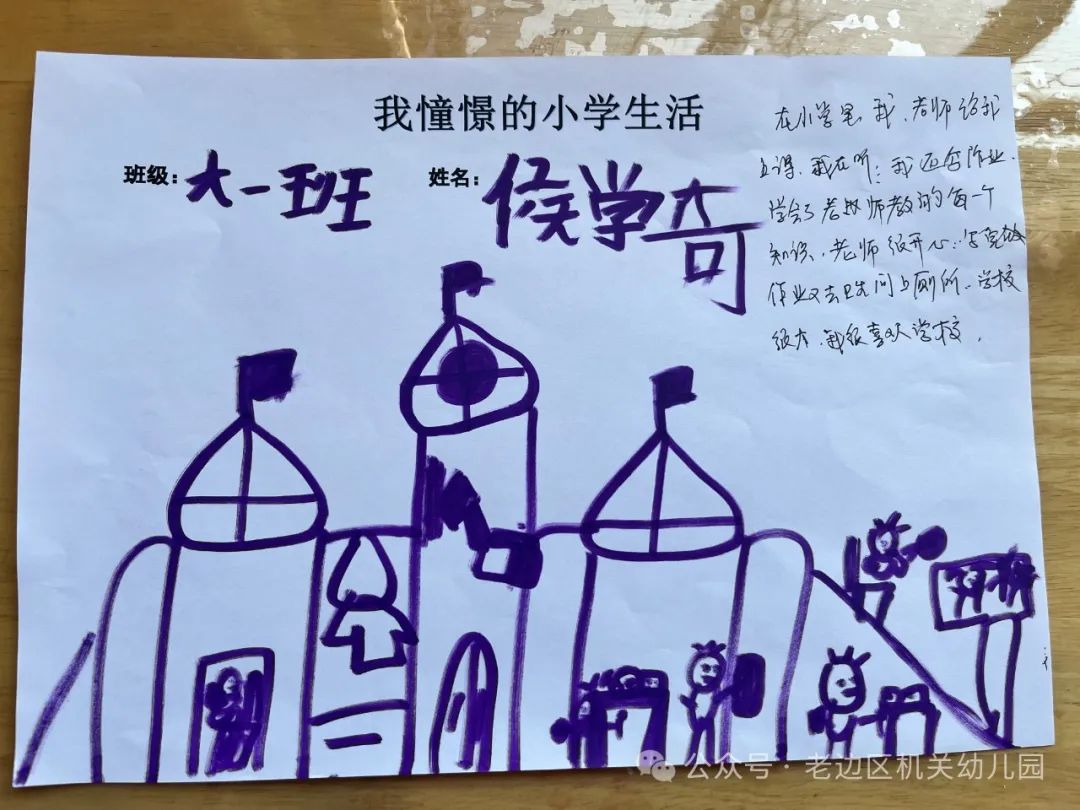 我憧憬的小学生活
班级：大一班
姓名：侯学奇
在小学里，我，老师给我
上课，我在听；我还写作业，
学会了老师教的每一个
知识，老师很开心；写完
作业又去卫生间上厕所，学校
很大，我很喜欢学校。
公众号·老边区机关幼儿园